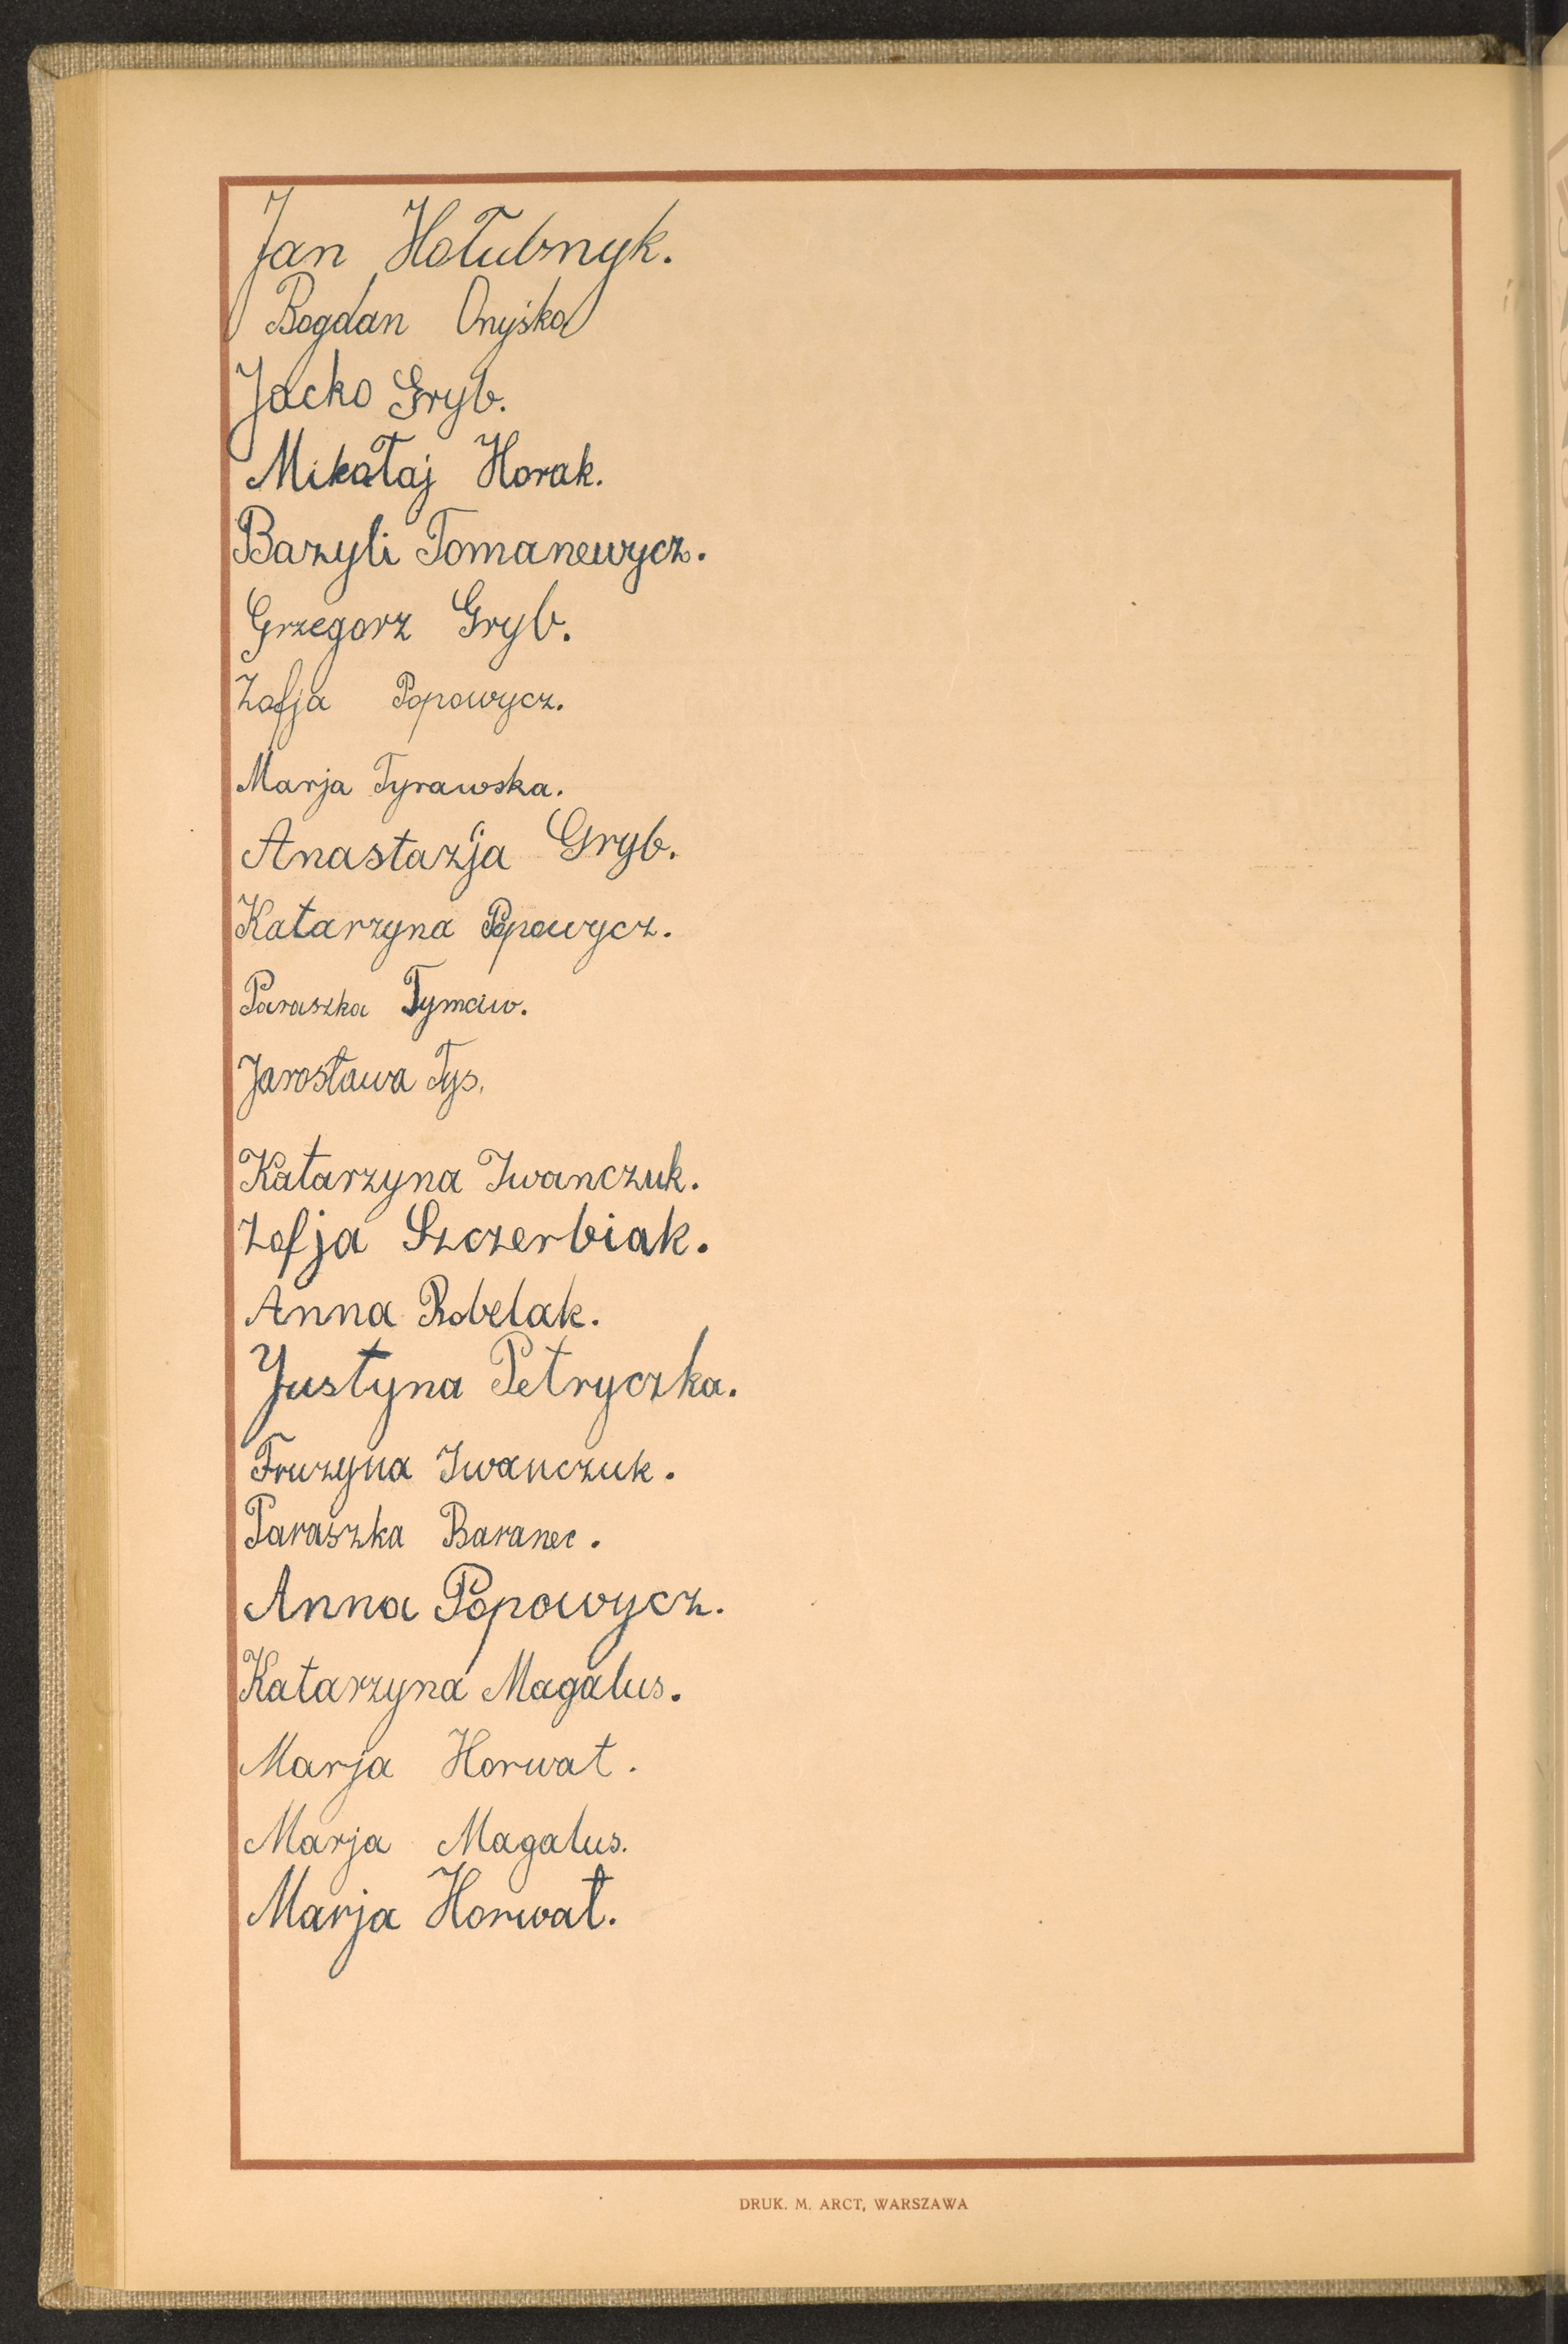 Jan Hołubnyk.
Bogdan Onyśko
Jacko Gryb.
Mikołaj Horak.
Bazyli Tomanewycz.
Grzegorz Gryb.
Zofja Popowycz.
Marja Tyrawska.
Anastazja Gryb.
Katarzyna Popowycz.
Paraszka Tymciw.
Jarosława Tys.
Katarzyna Iwanczuk.
Zofja Szczerbiak.
Anna Robelak.
Justyna Petryczka.
Fruzyna Iwanczuk.
Paraszka Baranec.
Anna Popowycz.
Katarzyna Magalus.
Marja Horwat.
Marja Magalus.
Marja Horwat.
DRUK. M. ARCT, WARSZAWA